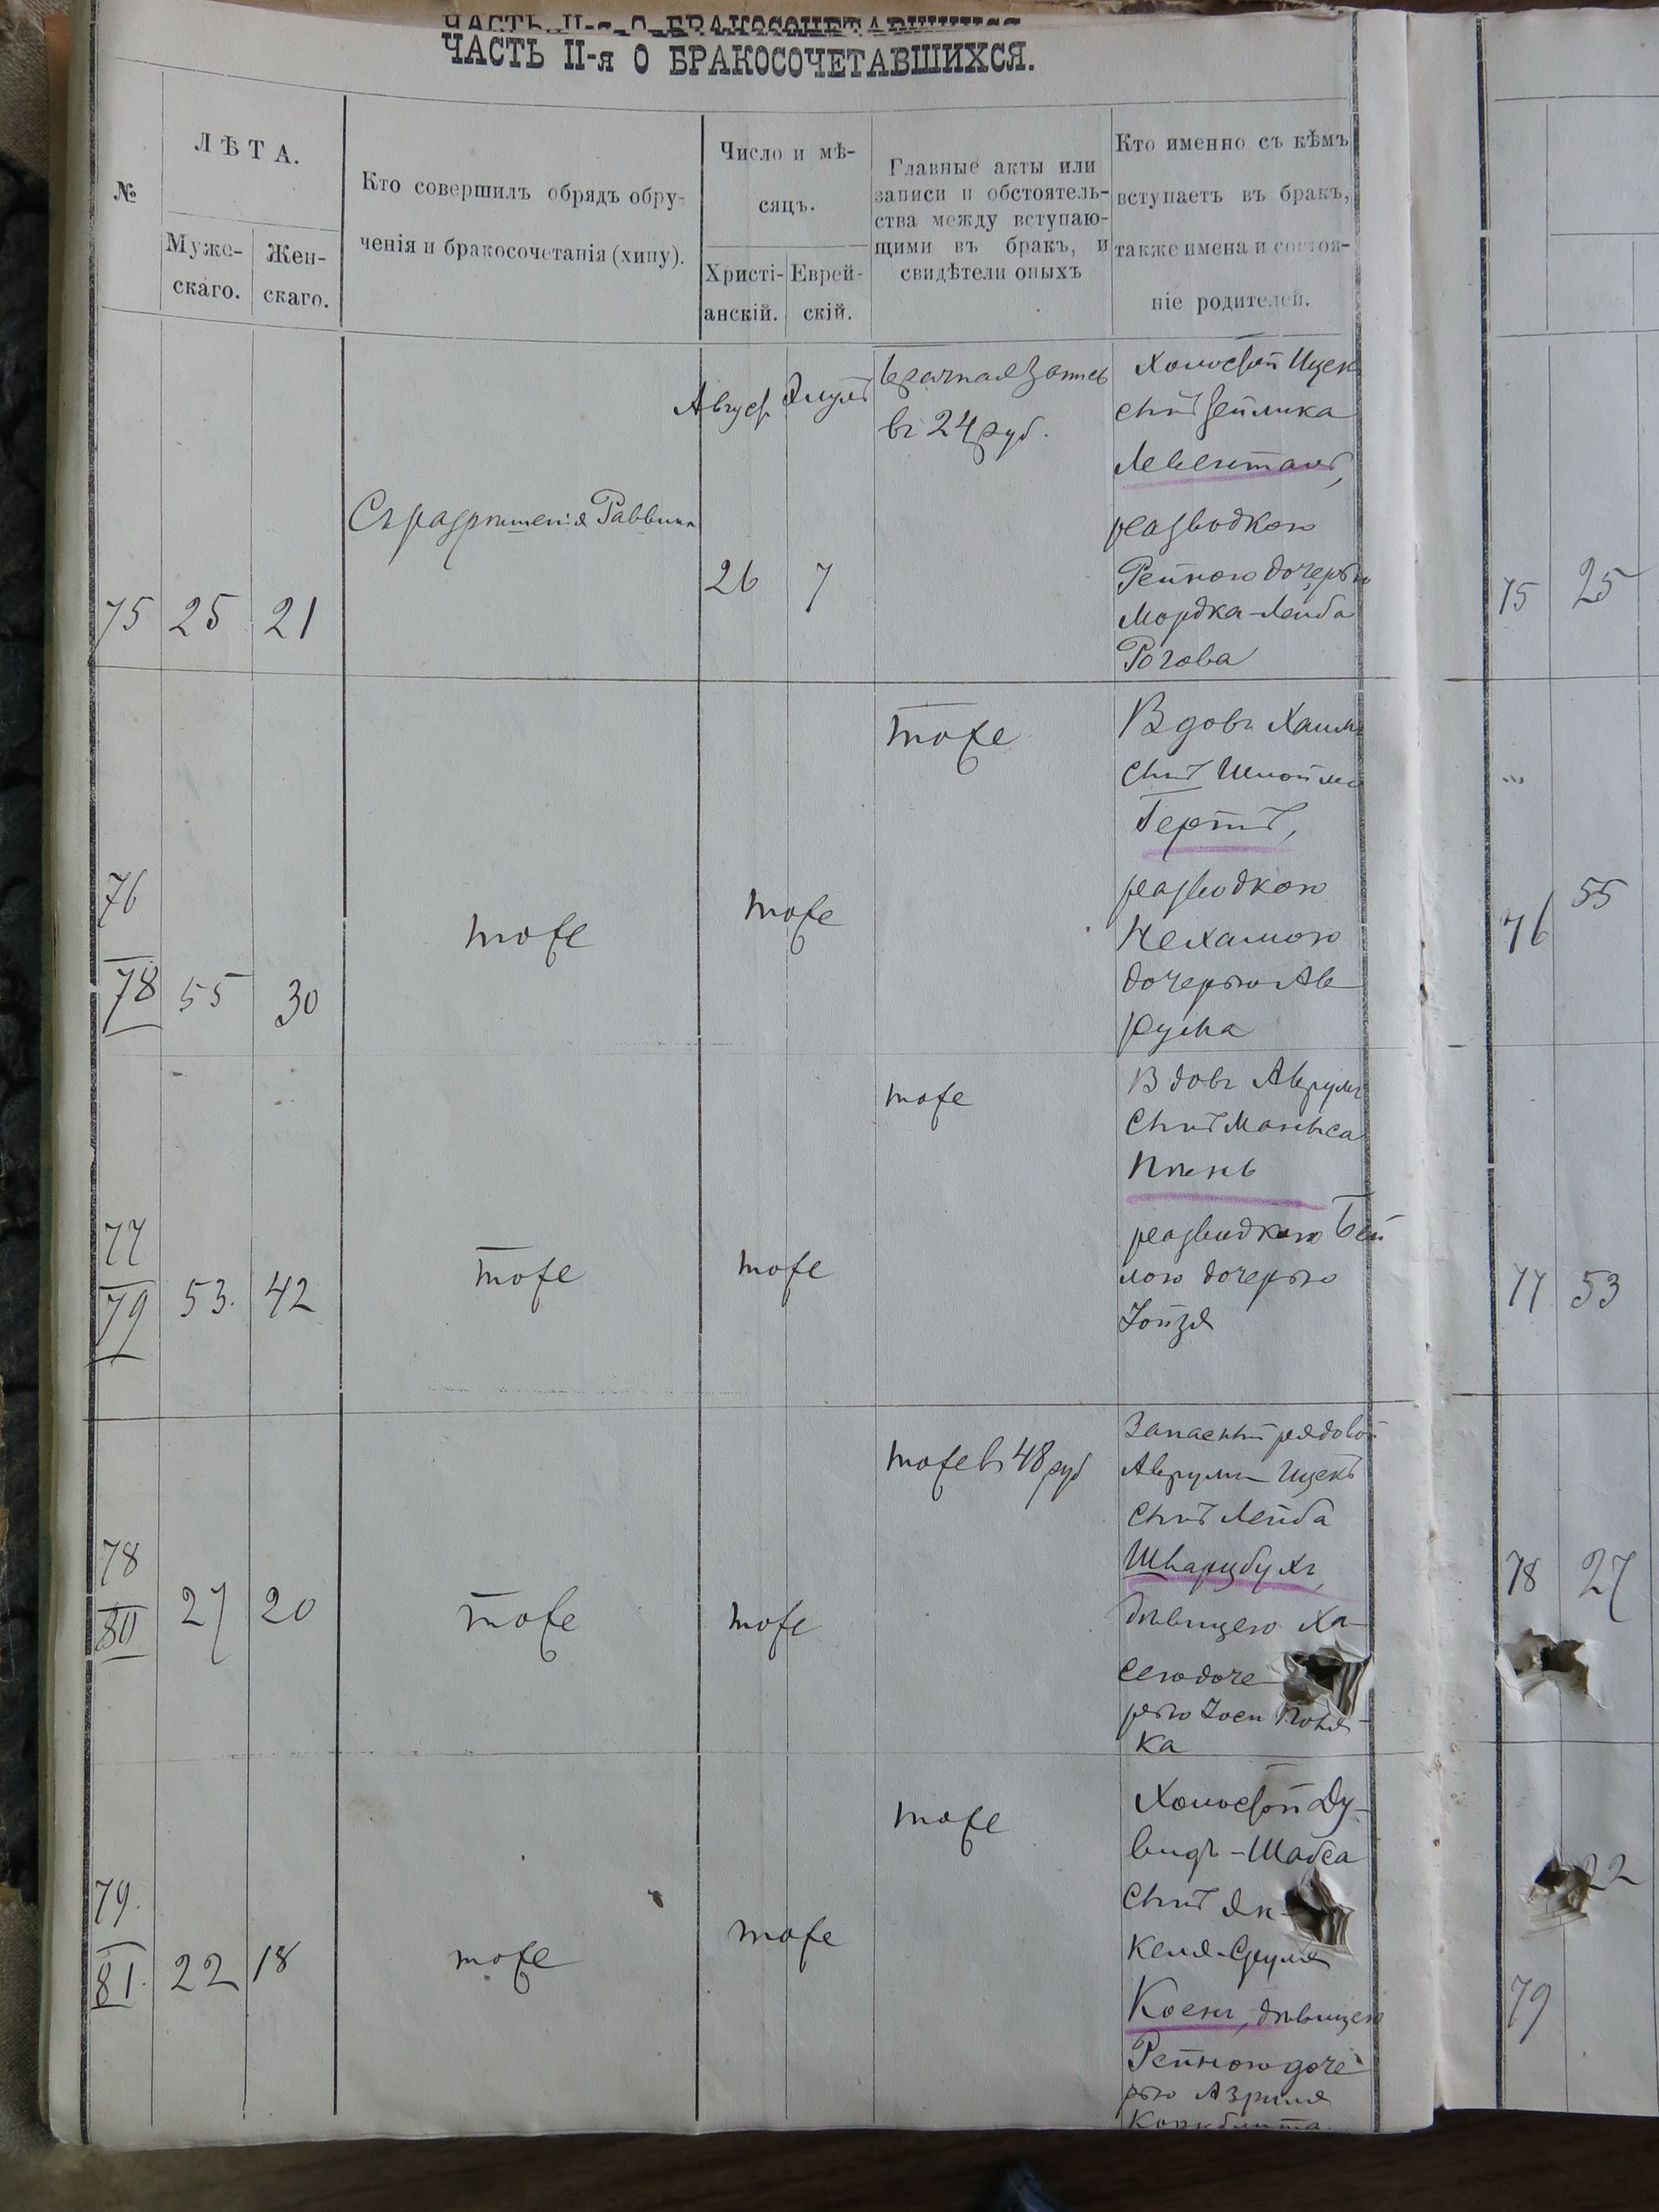 ЧАСТЬ II-я О БРАКОСОЧЕТАВШИХСЯ.
ЧАСТЬ II-я О БРАКОСОЧЕТАВШИХСЯ.
№
ЛѢТА.
Муже-
скаго.
Жен-
скаго.
Кто совершилъ обрядъ обру-
ченія и бракосочетанія (хипу).
Число и мѣ-
сяцъ.
Христі-
анскій.
Еврей-
скій.
Главные акты или
записи и обстоятель-
ства между вступаю-
щими въ бракъ, и
свидѣтели оныхъ
Кто именно съ кѣмъ
вступаетъ въ бракъ,
также имена и состоя-
ніе родителей.
75
25
21
Съ разрѣшенія Раввина
Август
26
Элулъ
7
брачная запись
въ 24 руб.
Холостой Ицек
сынъ Зейлика
Левенталь,
разводкою
Рейзею дочерью
Мордка-Лейба
Рогова
75
25
76
78
55
30
тоже
тоже
тоже
Вдовъ Хаимъ
сынъ Шлойма
разводкою
Нехамою
дочерью Ав
рума
76
55
77
79
53.
42
тоже
тоже
тоже
Вдовъ Аврумъ
сынъ Маньса
разводкою Бей
лою дочерью
Зойзя
77
53
78
80
27
20
тоже
тоже
тоже въ 48 руб
Запасный рядовой
Аврумъ Ицекъ
сынъ Лейба
Шварцбухъ,
дѣвицею Ха-
сею доче
рью Зоси Поля-
ка
78
27
79.
81.
22
18
тоже
тоже
тоже
Холостой Ду-
видъ-Шабса
сынъ Ян-
келя-Сруля
Коенъ, дѣвицею
Рейзею доче
рью Азриля
79
22